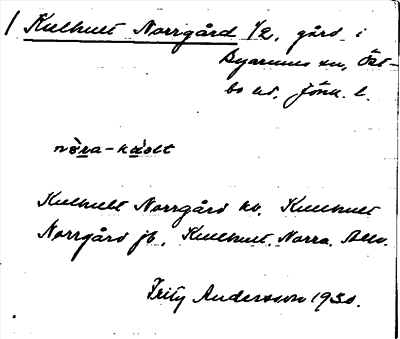 / Kulhult Norrgård 1/2, gård i
Byarums sn, Öst-
bo hd, Jönk. l.
Kulhult Norrgård kb. Kullhult
Norrgård jb. Kullhult Norra
Fritz Andersson 1930.